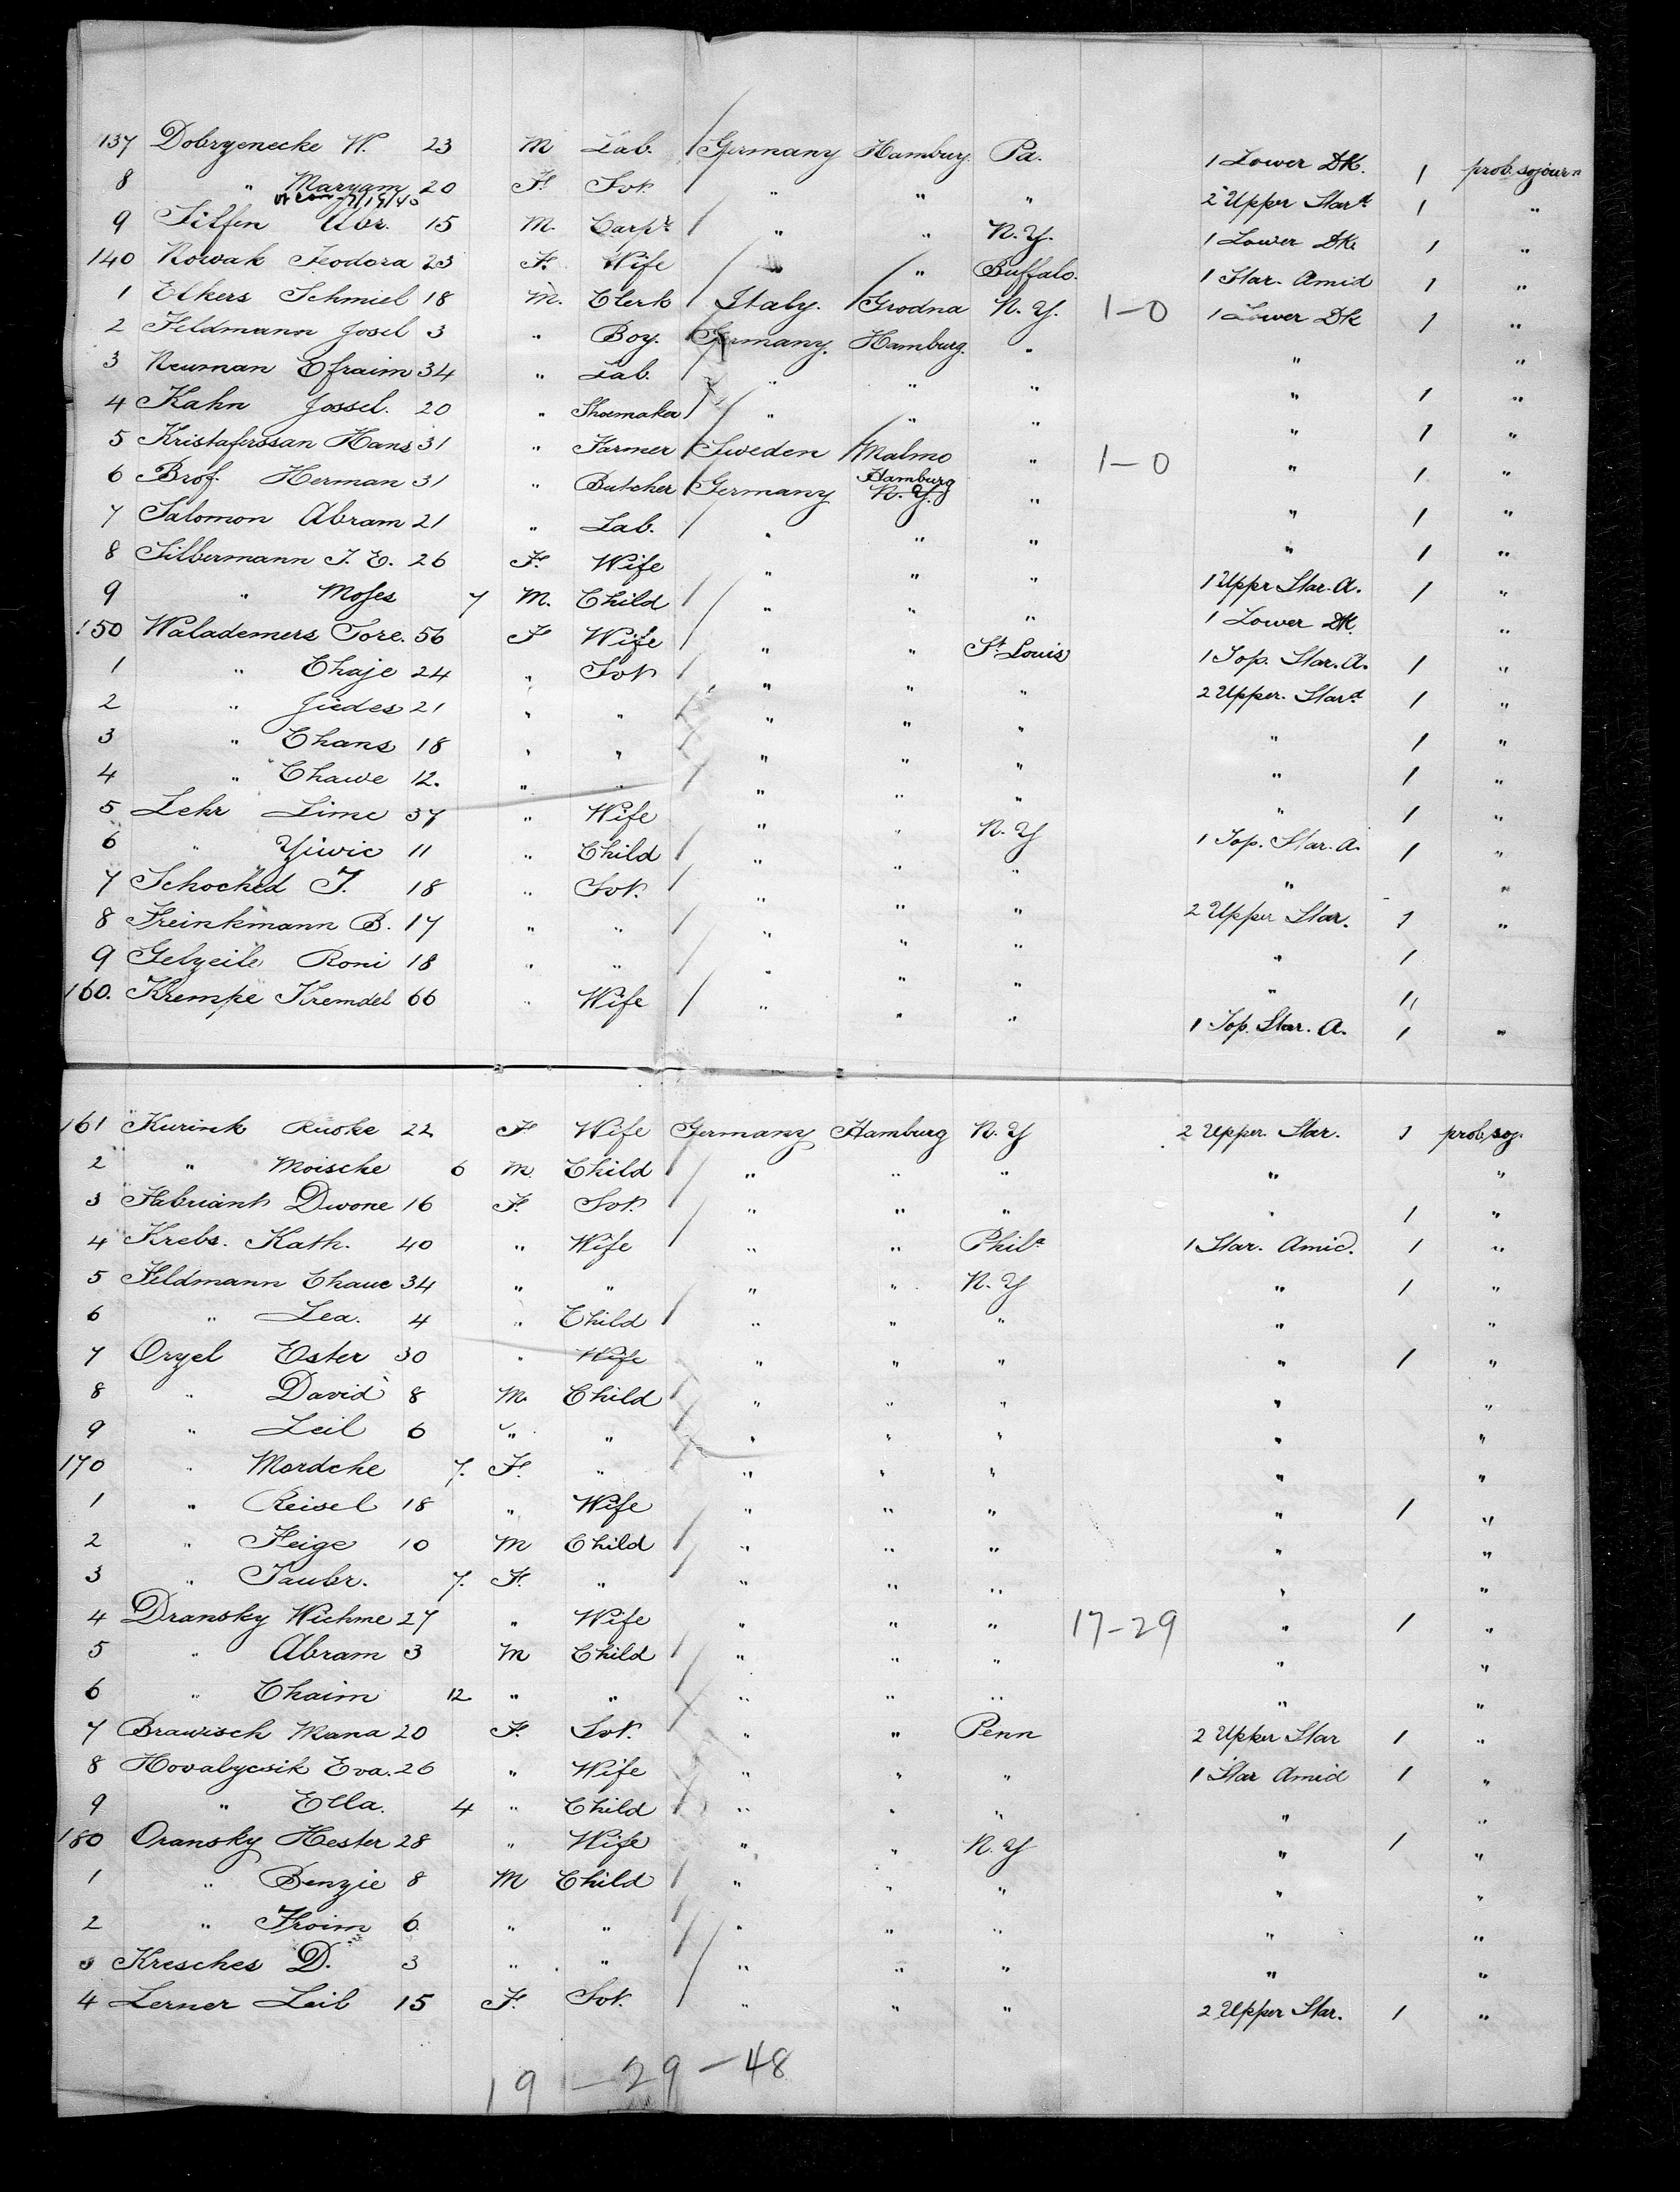 137 Dobryenecke W. 23 M Lab. Germany Hamburg. Pa. 1 Lower DK. 1 prob. sojourn
8 " Maryam 20 F. Svt " " " 2 Upper Star^d 1 "
9 Silfen Abr. 15 M. Carp^r " " N. Y. 1 Lower DK. 1 "
140 Nowak Feodora 23 F. Wife " " Buffalo. 1 Star. Amid 1 "
1 Elkers Schmiel 18 M. Clerk Italy. Grodna N. Y. 1-0 1 Lower DK 1 "
2 Feldmann Josel 3 " Boy. Germany. Hamburg. " " "
3 Neuman Efraim 34 " Lab. " " " " 1 "
4 Kahn Jossel. 20 " Shoemaker " " " " 1 "
5 Kristaferssan Hans 31 " Farmer Sweden Malmo " 1-0 " 1 "
6 Brof. Herman 31 " Butcher Germany Hamburg N. Y. " " 1 "
7 Salomon Abram 21 " Lab. " " " " 1 "
8 Silbermann J. E. 26 F. Wife " " " 1 Uppr Star. A. 1 "
9 " Moses 7 M. Child " " " 1 Lower DK. "
150 Walademers Tore. 56 F Wife " " St. Louis 1 Top. Star. A. 1 "
1 " Chaje 24 " Svt " " " 2 Upper. Star^d 1 "
2 " Jiedes 21 " " " " " " 1 "
3 " Chans 18 " " " " " " 1 "
4 " Chawe 12. " " " " " " 1 "
5 Lehr Lime 37 " Wife " " N. Y 1 Top. Star. A. 1 "
6 " Yiwie 11 " Child " " " " "
7 Schocked J. 18 " Svt. " " " 2 Upper Star. 1 "
8 Freinkmann B. 17 " " " " " " 1
9 Gelzeile Roni 18 " " " " " " 11
160. Krempe Kremdel 66 " Wife " " " 1 Top. Star. A. 1 "
161 Kurink Ruske 22 F Wife Germany Hamburg N. Y 2 Upper. Star. 1 prob. soj.
2 " Moische 6 M. Child " " " " "
3 Fabriant Dwone 16 F. Svt. " " " " 1 "
4 Krebs. Kath. 40 " Wife " " Phil^a 1 Star. Amid. 1 "
5 Feldmann Chaue 34 " " " " N. Y " 1 "
6 " Lea. 4 " Child " " " " "
7 Oryel Ester 30 " Wife " " " " 1 "
8 " David 8 M. Child " " " " "
9 " Leil 6 " " " " " " "
170 " Mordche 7. F. " " " " " "
1 " Reisel 18 " Wife " " " " 1 "
2 " Feige 10 M Child " " " " "
3 " Taubr. 7. F. " " " " " "
4 Dransky Wichme 27 " Wife " " " 17-29 " 1 "
5 " Abram 3 M Child " " " " "
6 " Chaim 12 " " " " " " "
7 Brawisch Mana 20 F. Svt. " " Penn 2 Upper Star 1 "
8 Hovalycsik Eva. 26 " Wife " " " 1 Star Amid 1 "
9 " Ella. 4 " Child " " " " "
180 Oransky Hester 28 " Wife " " N. Y " 1 "
1 " Benzie 8 M Child " " " " "
2 " Froim 6 " " " " " " "
3 Kresches D. 3 " " " " " " "
4 Lerner Leib 15 F. Svt. " " " 2 Upper Star. 1 "
19 - 29 - 48